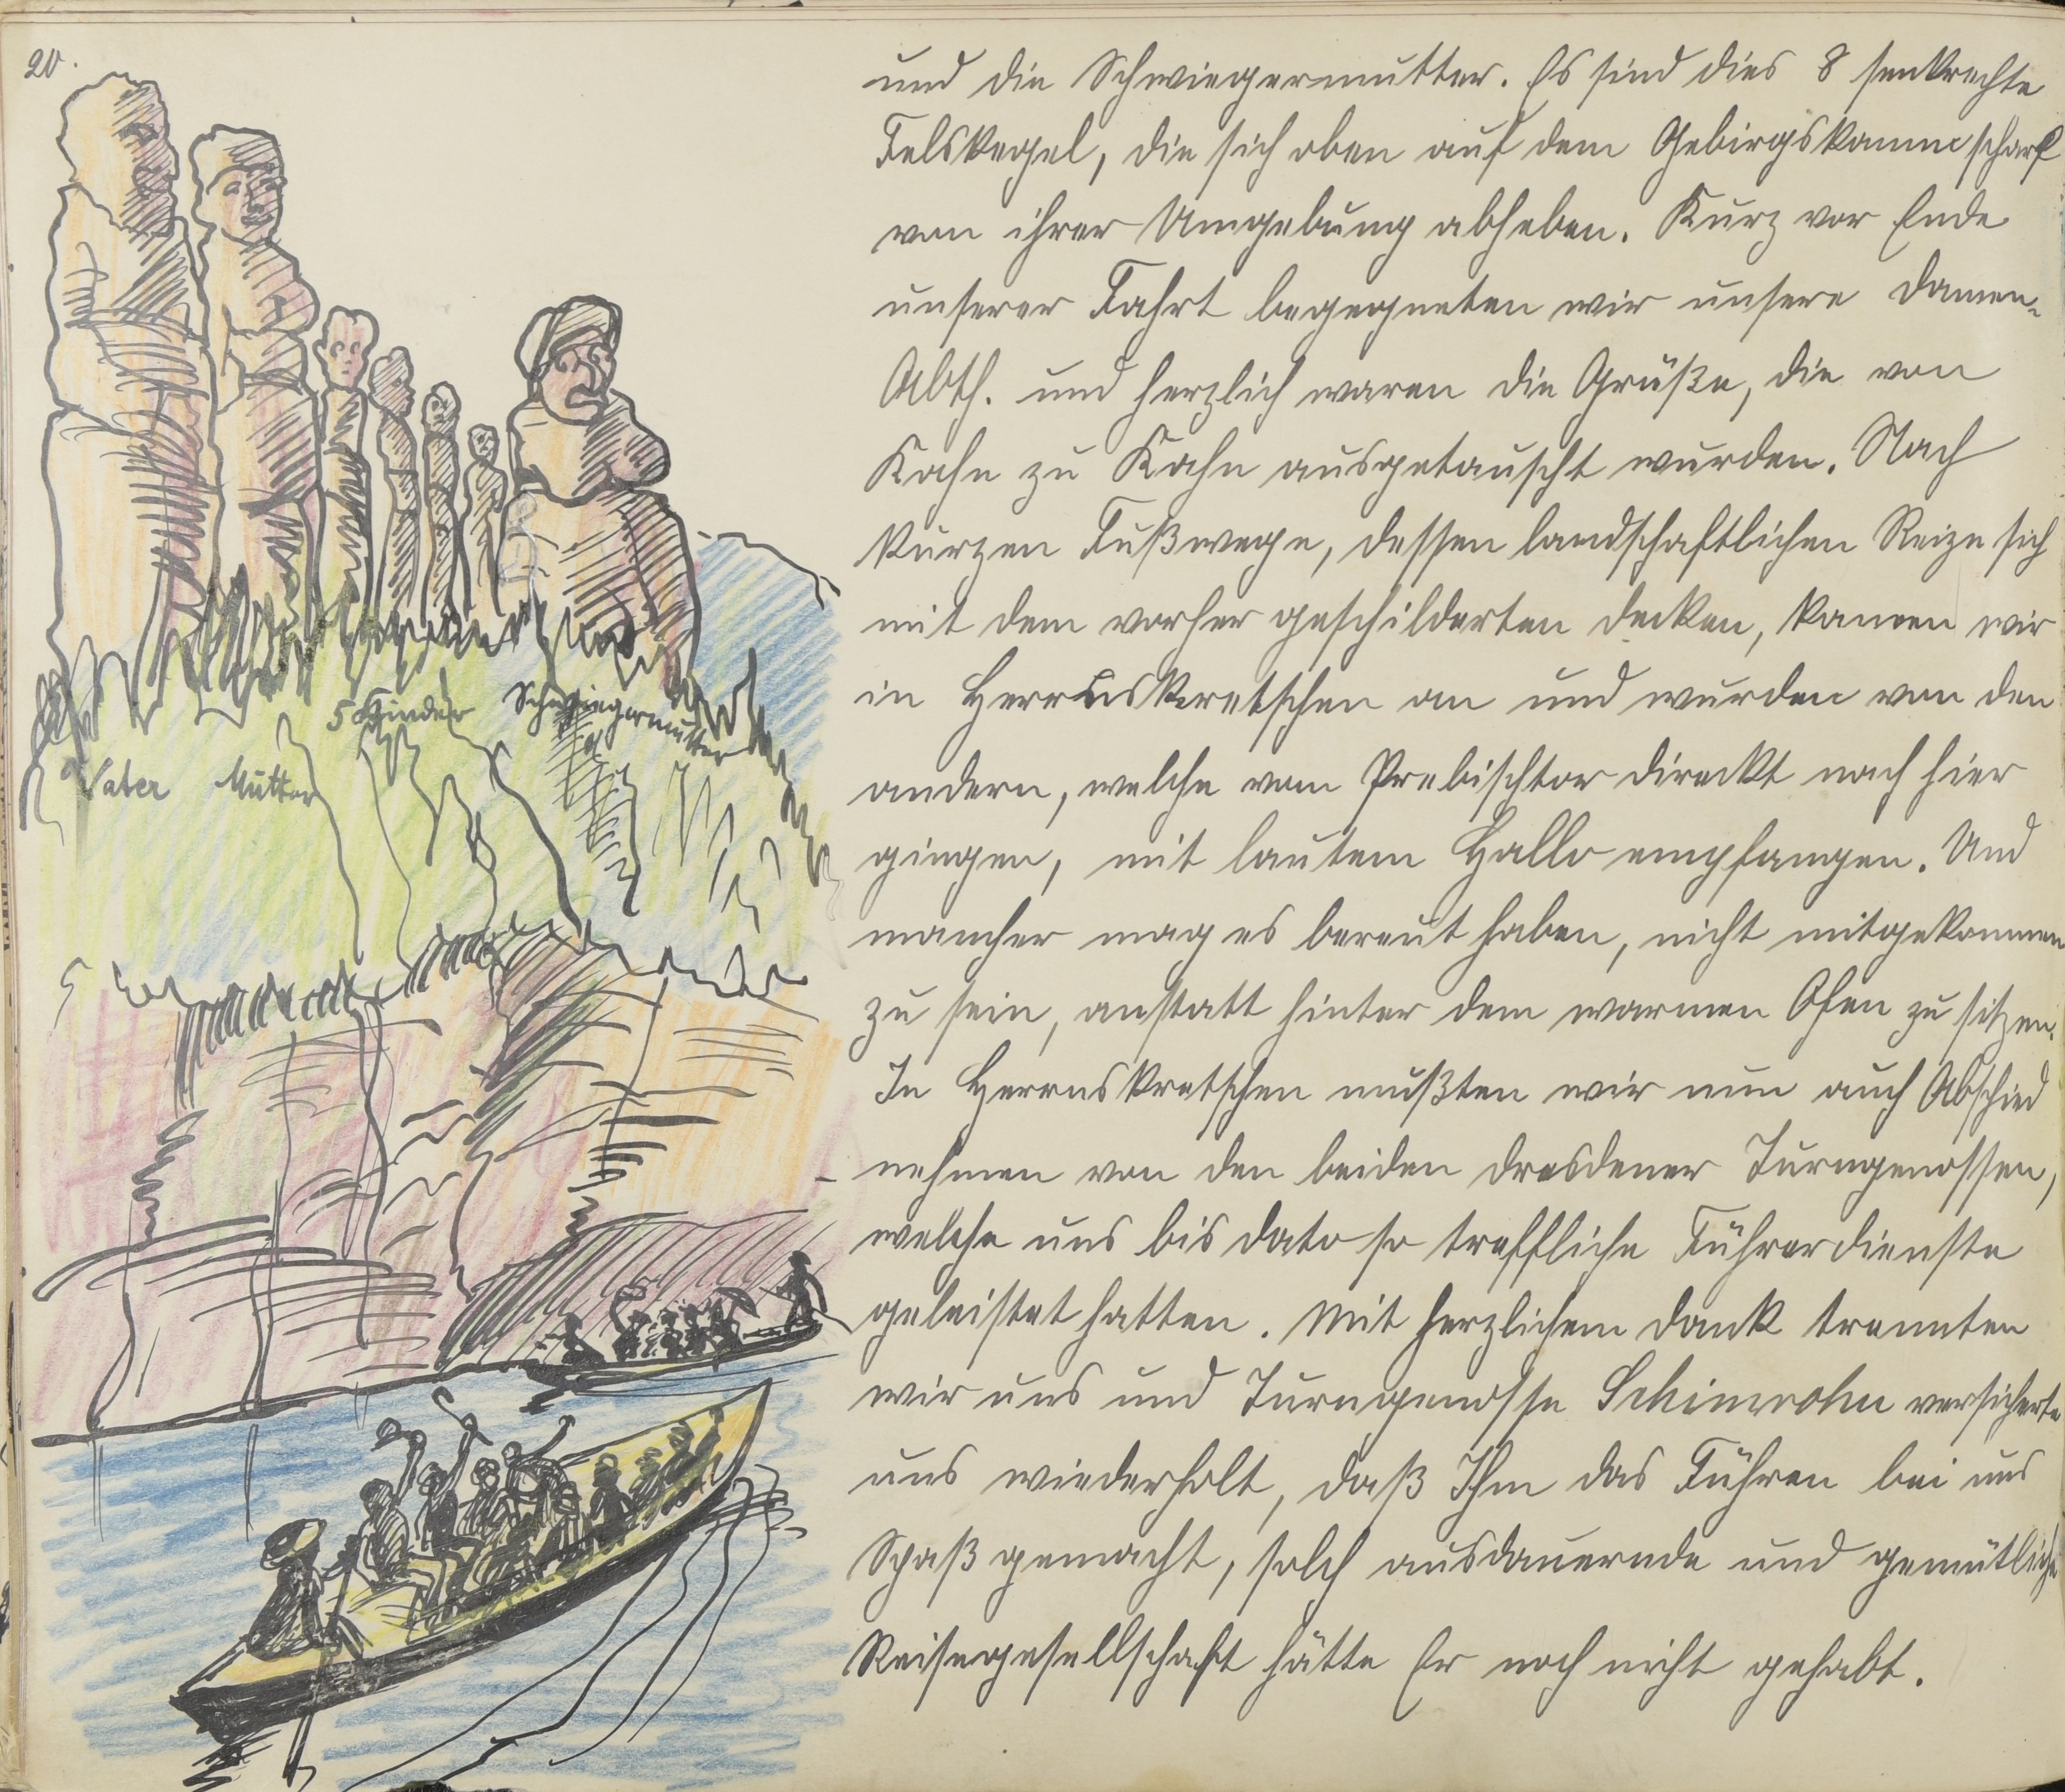 20.
und die Schwiegermutter. Es sind dies 8 senkrechte
Felskegel, die sich oben auf dem Gebirgskamm scharf
von ihrer Umgebung abheben. Kurz vor Ende
unserer Fahrt begegneten wir unsere Damen-
Abth. und herzlich waren die Grüße, die von
Kahn zu Kahn ausgetauscht wurden. Nach
kurzen Fußwege, dessen landschaftlichen Reize sich
mit dem vorher geschilderten decken, kamen wir
in Herrnskretschen an und wurden von den
andern, welche vom Prebischtor direckt nach hier
gingen, mit lautem Hallo empfangen. Und
mancher mag es bereut haben, nicht mitgekommen
zu sein, anstatt hinter dem warmen Ofen zu sitzen.
In Herrnskretschen mußten wir nun auch Abschied
nehmen von den beiden dresdener Turngenossen,
welche uns bis dato so treffliche Führerdienste
geleistet hatten. Mit herzlichem Dank trennten
wir uns und Turngenosse versicherte
uns wiederholt, daß Ihm das Führen bei uns
Spaß gemacht, solch ausdauernde und gemütliche
Reisegesellschaft hätte Er noch nicht gehabt.
5 Kinder Schwiegermutter
Vater Mutter